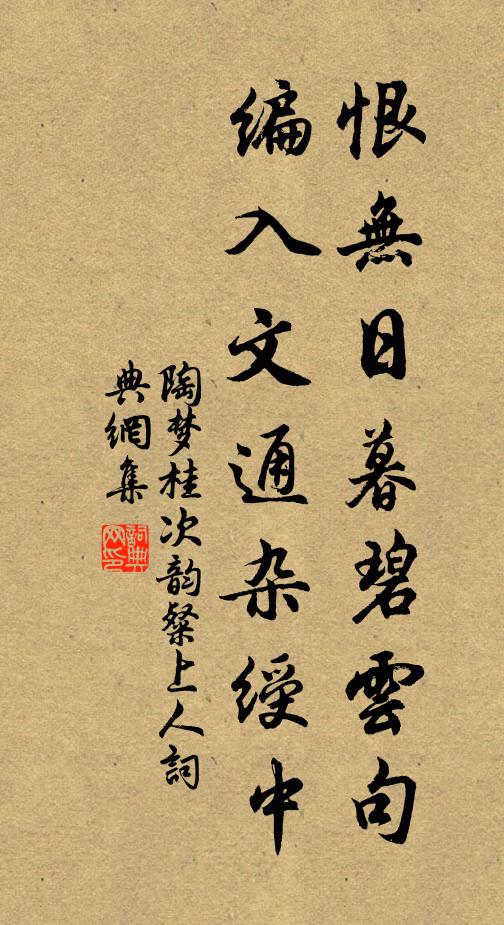 恨無日暮碧雲句
編入文通杂綬中
陶梦桂次韵粲上人詞
典網集
詞典網印